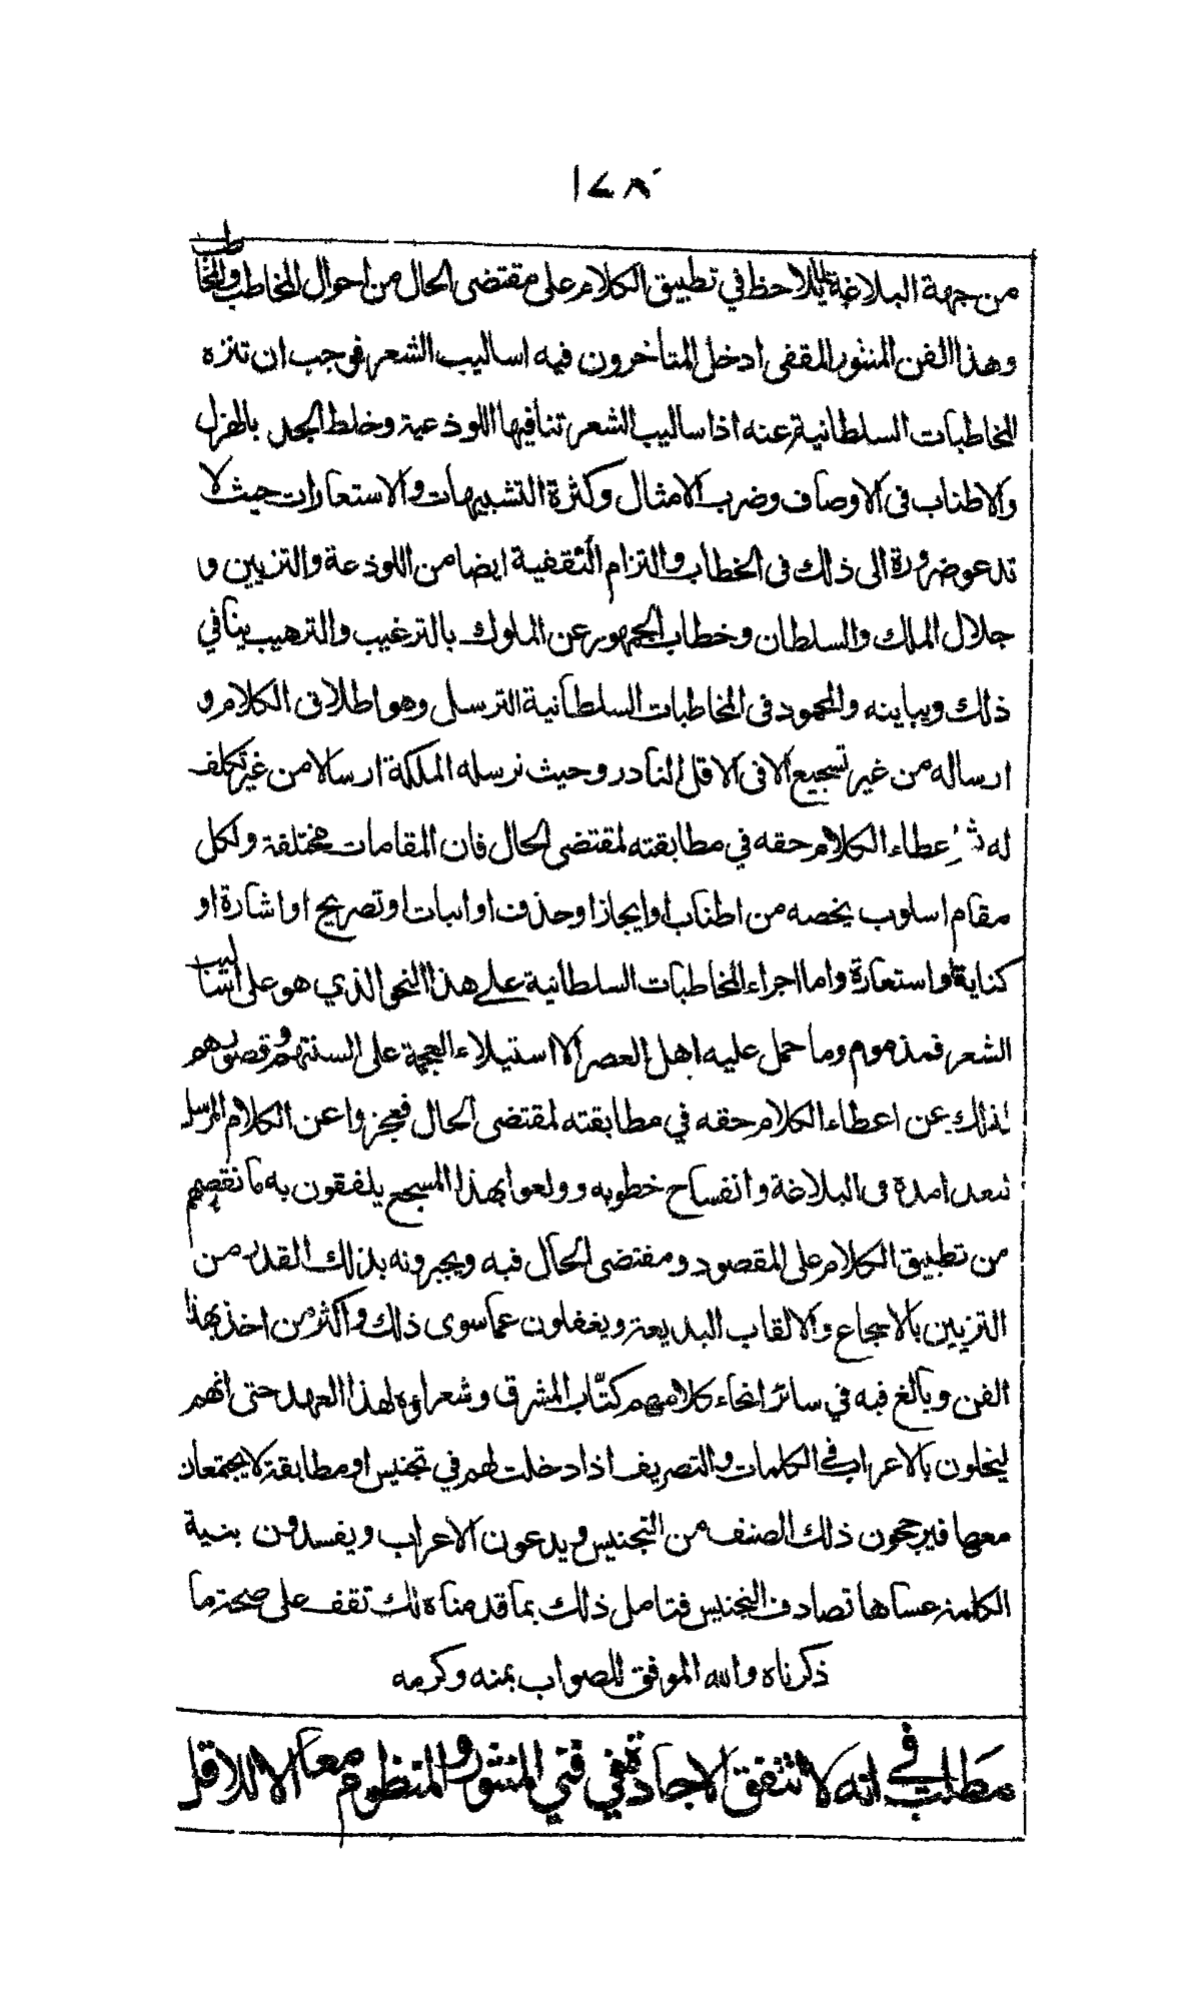 ١٧٨
من جهة البلاغة لما يلاحظ في تطبيق الكلام على مقتضى الحال من احوال المخاطب والمخاطب
وهذا الفن المنثور المقفى ادخل المتأخرون فيه اساليب الشعر فوجب ان تنزه
المخاطبات السلطانية عنه اذ اساليب الشعر تنافيها اللوذعية وخلط الجد بالهزل
والاطناب في الاوصاف وضرب الامثال وكثرة التشبيهات والاستعارات حيث لا
تدعو ضرورة الى ذلك في الخطاب والتزام التقفية ايضا من اللوذعة والتزيين و
جلال الملك والسلطان وخطاب الجمهور عن الملوك بالترغيب والترهيب ينافي
ذلك ويباينه والمحمود في المخاطبات السلطانية الترسل وهو اطلاق الكلام و
ارساله من غير تسجيع الا في الاقل النادر وحيث نرسله الملكة ارسالا من غير تكلف
له ثم اعطاء الكلام حقه في مطابقته لمقتضى الحال فان المقامات مختلفة ولكل
مقام اسلوب يخصه من اطناب او ايجاز او حذف او اثبات او تصريح او اشارة او
كناية او استعارة واما اجراء المخاطبات السلطانية على هذا النحو الذي هو على اساليب
الشعر فمذموم وما حمل عليه اهل العصر الا استيلاء العجمة على السنتهم وقصورهم
لذلك عن اعطاء الكلام حقه في مطابقته لمقتضى الحال فعجزوا عن الكلام المرسل
لبعد امده في البلاغة وانفساح خطوبه وولعوا بهذا المسجع يلفقون به ما نقصهم
من تطبيق الكلام على المقصود ومقتضى الحال فيه ويجبرونه بذلك القدر من
التزيين بالاسجاع والالقاب البديعة ويغفلون عما سوى ذلك واكثر من اخذ بهذا
الفن وبالغ فيه في سائر انحاء كلامهم كتّاب المشرق وشعراؤه لهذا العهد حتى انهم
ليخلون بالاعراب في الكلمات والتصريف اذا دخلت لهم في تجنيس او مطابقة لا يجتمعان
معها فيرجحون ذلك الصنف من التجنيس ويدعون الاعراب ويفسدون بنية
الكلمة عساها تصادف التجنيس فتامل ذلك بما قدمناه لك تقف على صحة ما
ذكرناه والله الموفق للصواب بمنه وكرمه
مطلب في انه لا تتفق الاجادة في فني المنثور والمنظوم معا الا للاقل